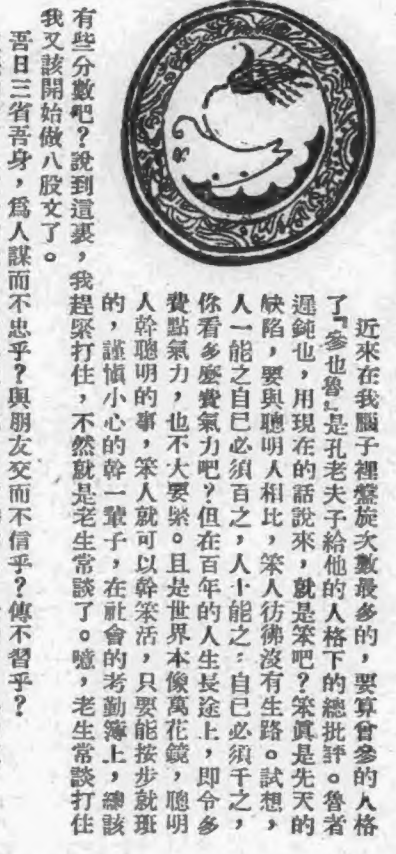 近來在我腦子裡盤旋次數最多的，要算曾參的人格
了『參也魯』是孔老夫子給他的人格下的總批評。魯者
遲鈍也，用現在的話說來，就是笨吧？笨眞是先天的
缺陷，要與聰明人相比，笨人彷彿沒有生路。試想，
人一能之自已必須百之，人十能之：自已必須千之，
你看多麼費氣力吧？但在百年的人生長途上，即令多
費點氣力，也不大要緊。且是世界本像萬花鏡，聰明
人幹聰明的事，笨人就可以幹笨活，只要能按步就班
的，謹愼小心的幹一輩子，在社會的考勤簿上，總該
有些分數吧？說到這裏，我趕緊打住，不然就是老生常談了。噫，老生常談打住
我又該開始做八股文了。
吾日三省吾身，爲人謀而不忠乎？與朋友交而不信乎？傳不習乎？